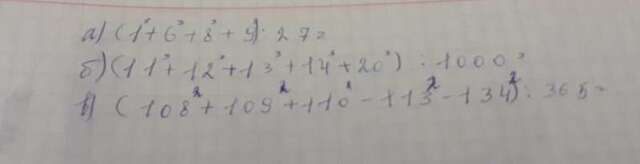 а) (1³+6³+8³+9³):27=
б) (11³+12³+13³+14³+20³):1000=
в) (108²+109²+110²-113²-134²):365=